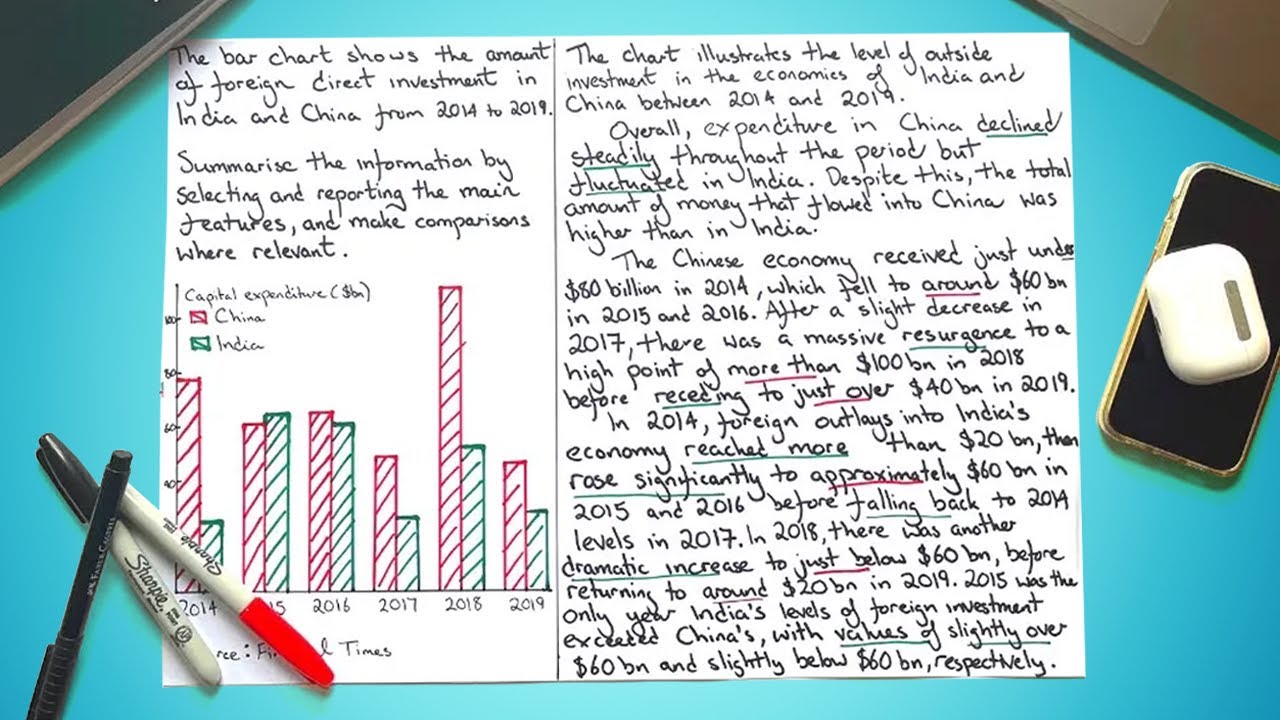 The bar chart shows the amount
of foreign direct investment in
India and China from 2014 to 2019.
Summarise the information by
selecting and reporting the main
features, and make comparisons
where relevant.
Capital expenditure ($bn)
China
India
100
80
60
40
2014
2016
2017
2018
2019
Times
The chart illustrates the level of outside
investment in the economies of India and
China between 2014 and 2019.
Overall, expenditure in China declined
steadily throughout the period but
fluctuated in India. Despite this, the total
amount of money that flowed into China was
higher than in India.
The Chinese economy received just under
$80 billion in 2014, which fell to around $60 bn
in 2015 and 2016. After a slight decrease in
2017, there was a massive resurgence to a
high point of more than $100 bn in 2018
before receding to just over $40 bn in 2019.
In 2014, foreign outlays into India's
economy reached more than $20 bn, then
rose significantly to approximately $60 bn in
2015 and 2016 before falling back to 2014
levels in 2017. In 2018, there was another
dramatic increase to just below $60 bn, before
returning to around $20 bn in 2019. 2015 was the
only year India's levels of foreign investment
exceeded China's, with values of slightly over
$60 bn and slightly below $60 bn, respectively.
Sharpie
Sharpie
FABER-CASTELL